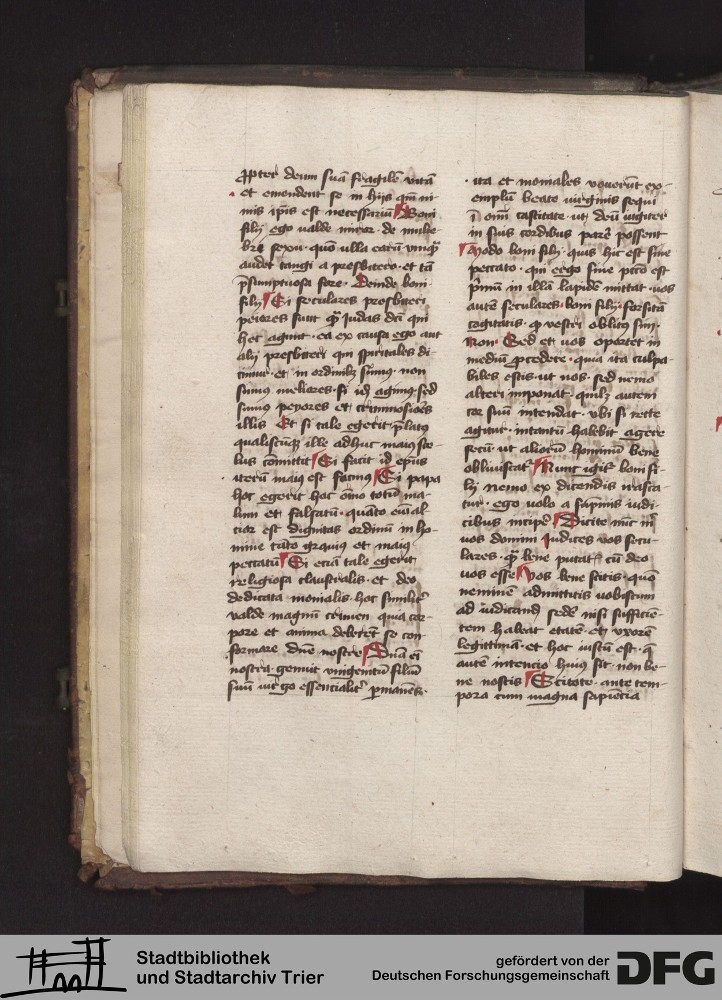 ꝓpter deum suā fragilē vitā
et emendent se in hijs qm̄ ni-
mis ip̄is est necessariū Boni
filij ego valde miror de mulie
bri sexu quō ulla earū vnqȝ
audet tangi a presbitero et tā
p̄sumptuosa fore Deinde boni
filij Si seculares presbiteri
peiores sunt qȝ Judas dei qui
hoc agunt ea ex causa ego aut
alij presbiteri qui spiritales di
cimur et in ordinibȝ sumus non
sumus meliores si id agimus sed
sumus peyores et criminosiores
illis Et si tale egerit p̄latus
qualiscūqȝ ille adhuc maius sce-
lus cōmittit Si facit id ep̄us
iterū maius est facinus Si papa
hoc egerit hoc om̄o totū ma-
lum et falsatū quāto eni̅ al-
cior est dignitas ordinum in ho-
mine tāto grauius et maius
peccatū Si eciā tale egerit
religiosa claustralis et deo
dedicata monialis hoc simil̄r
valde magnū crimen quia cor-
pore et anima deberēt se con
formare dn̄e nostre Dn̄a ei̅
nostra genuit vnigenitū filiū
suū vir̄go essencialit̄ p̄manēs
ita et moniales vouerūt ex-
emplū beate virginis sequi
ī omī castitate ut deū iugiter
in suis cordibus parē possent
Modo boni filij quis hic est sine
peccato qui ergo sine pctō est
p̄mū in illā lapidē mittat vos
autē seculares boni filij forsitā
cogitatis qȝ vestri oblitus sim
Non Sed et uos oportet in
mediū ꝓcedere quia ita culpa-
biles estis ut nos sed nemo
alteri imponat quilȝ autem
cor suū intendat vbi si recte
agitur intantū habebit agere
secū ut aliorū hominū bene
obliuiscat Nunc igit̄ boni fi-
lij nemo ex dicendis irasca-
tur ego uolo a sup̄mis iudi-
cibus incipe Dicite nūc m̄
uos domini Judices vos secu-
lares qȝ bene putat cū deo
uos esse vos bene scitis quō
neminē admittitis uobiscum
ad iudicand sedē nisi sufficiē-
tem habeat etatē et vxorē
legittimā et hoc iustū est q̄
autē intencio huius sit non be-
ne nostis Scitote ante tem-
pora cum magna sapiēcia
Stadtbibliothek
und Stadtarchiv Trier
gefördert von der
Deutschen Forschungsgemeinschaft
DFG